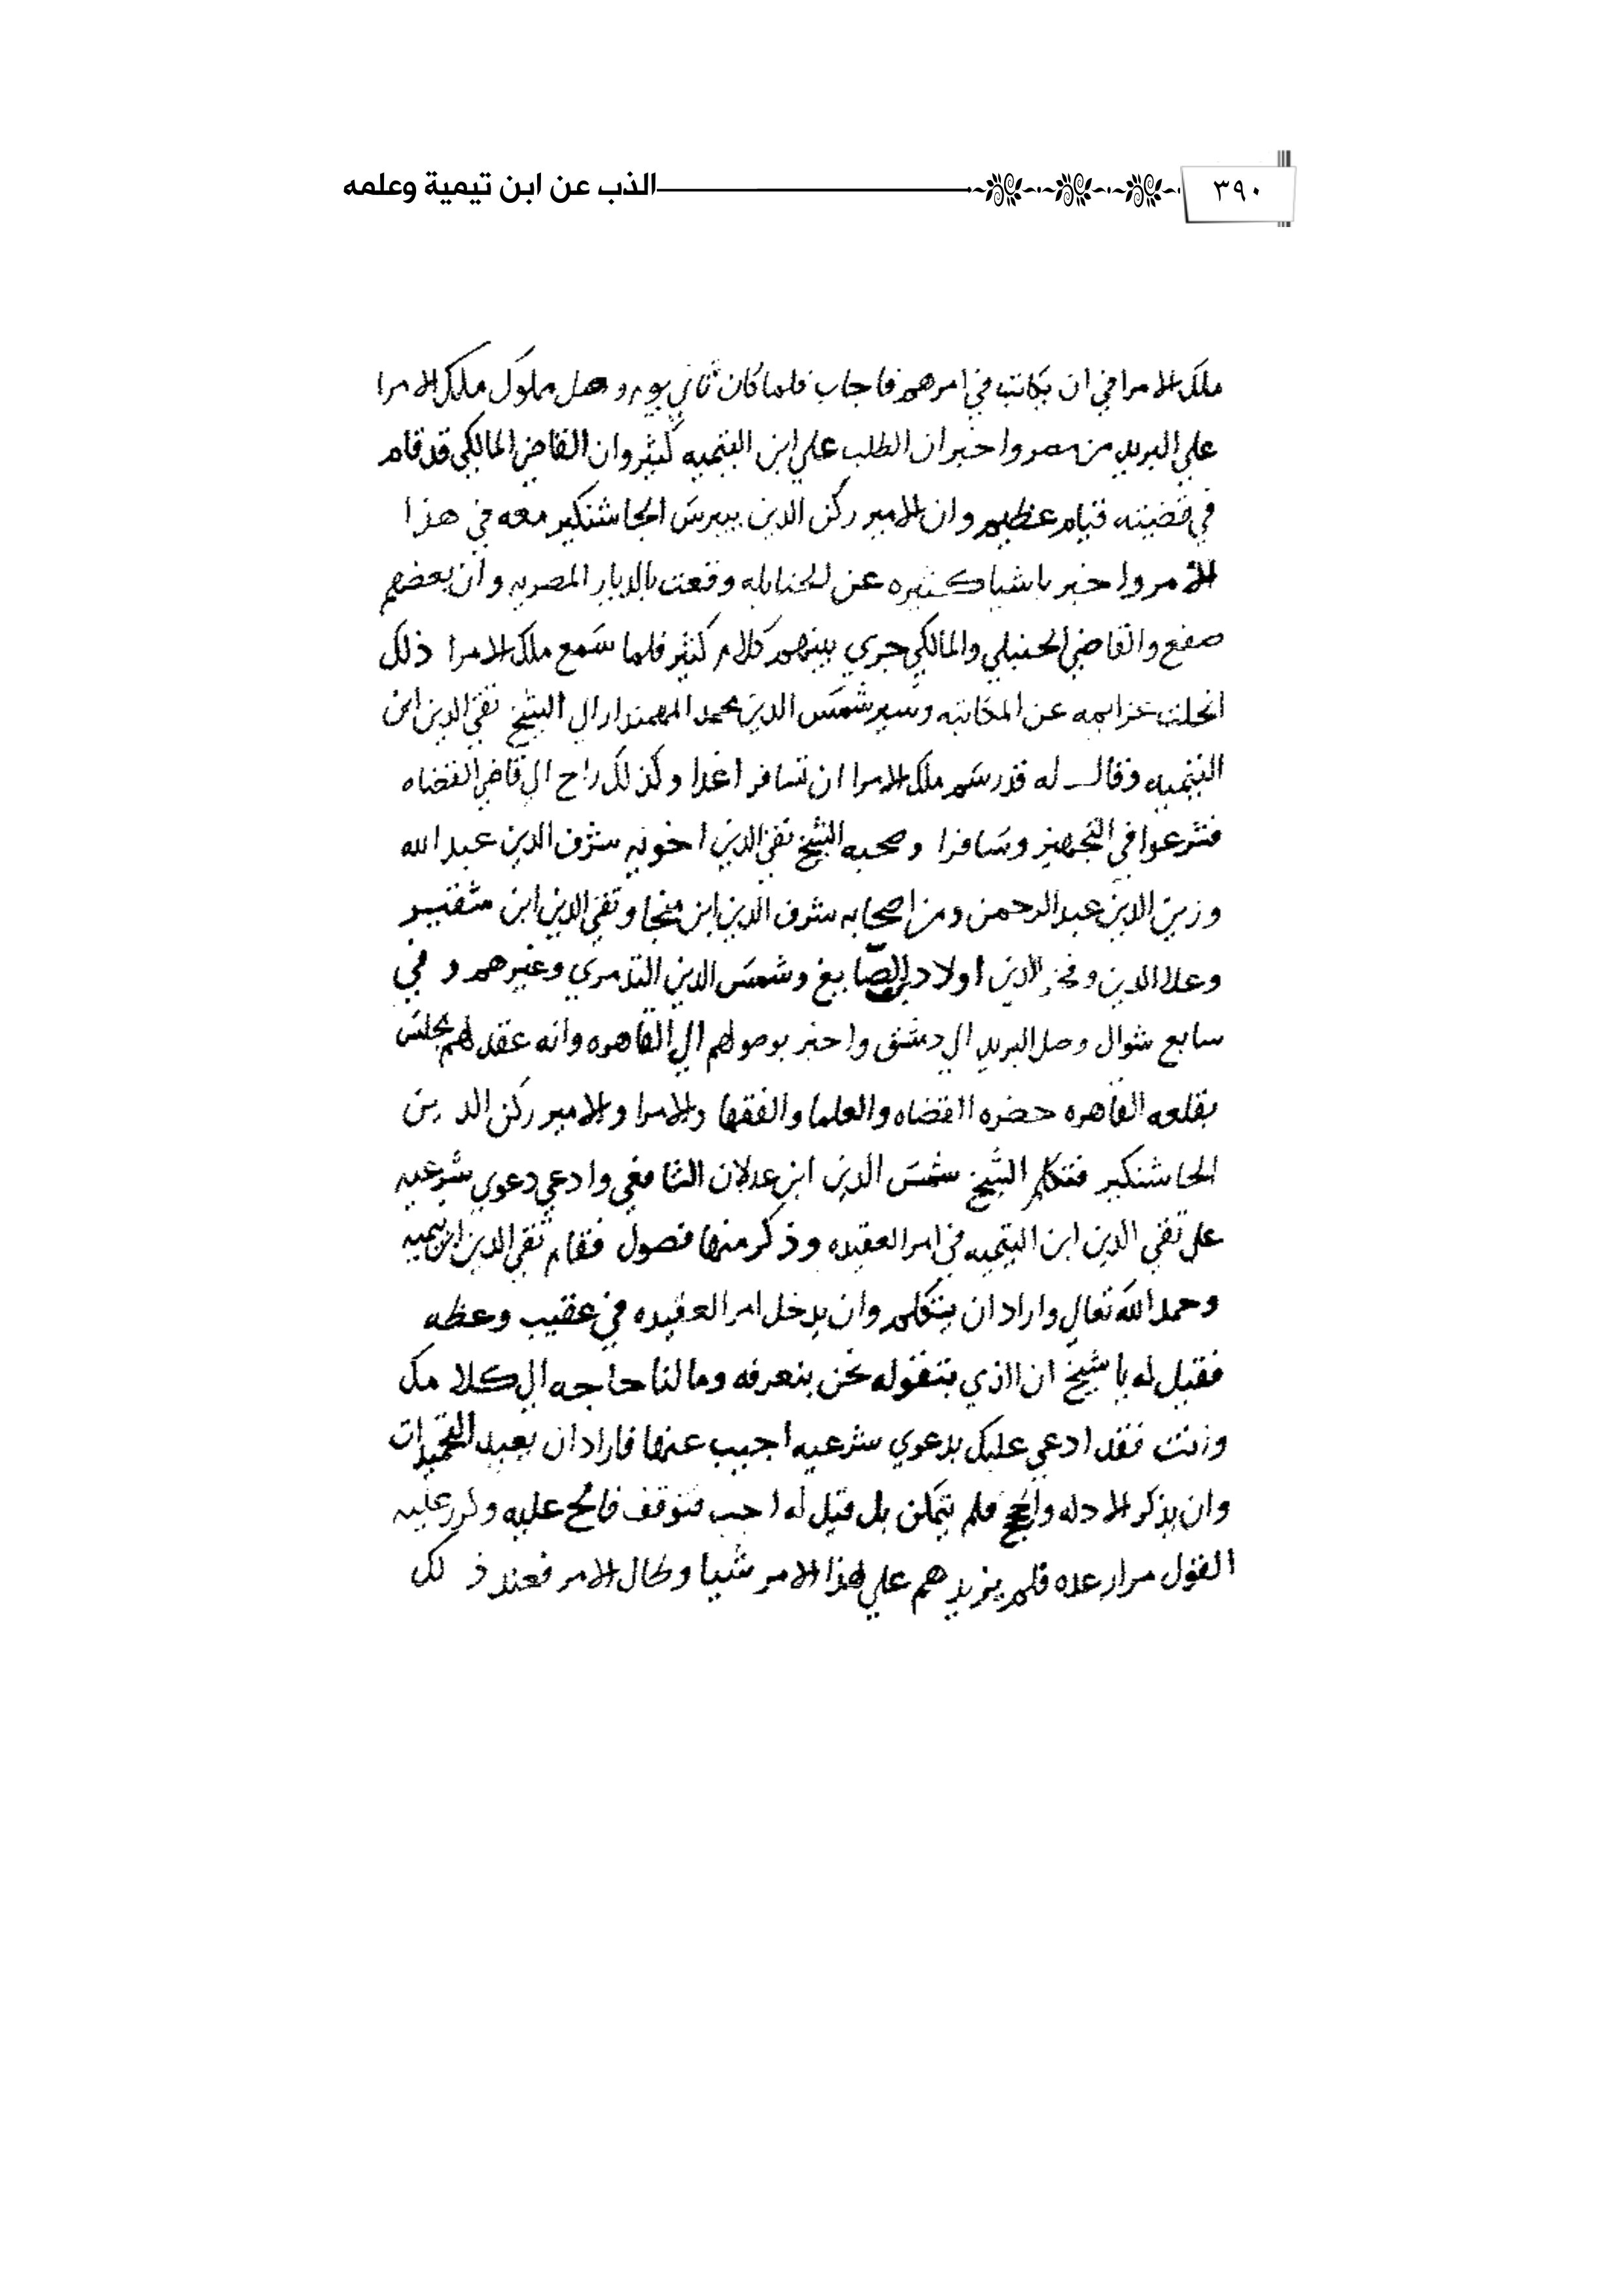 ٣٩٠ الذب عن ابن تيمية وعلمه
ملك الامرا في ان يكاتب في امرهم فاجاب فلما كان ثاني يوم وصل مملوك ملك الامرا
علي البريد من مصر واخبر ان الطلب علي ابن التيميه كثير وان القاضي المالكي قد قام
في قضيته قيام عظيم وان الامير ركن الدين بيبرس الجاشنكير معه في هذا
الامر واخبر باشيا كثيره عن الحنابله وقعت بالديار المصريه وان بعضهم
صفع والقاضي الحنبلي والمالكي جري بينهم كلام كثير فلما سمع ملك الامرا ذلك
انحلت عزايمه عن المكاتبه وسير شمس الدين محمد المهمندار الي الشيخ تقي الدين ابن
التيميه وقال له قد رسم ملك الامرا ان تسافر اغدا وكذلك راح الي قاضي القضاه
فشرعوا في التجهيز وسافرا وصحبه الشيخ تقي الدين اخوته شرف الدين عبد الله
وزين الدين عبد الرحمن ومن اصحابه شرف الدين ابن منجا وتقي الدين ابن شقير
وعلا الدين وفخر الدين اولاد الصايغ وشمس الدين التدمري وغيرهم و في
سابع شوال وصل البريد الي دمشق واخبر بوصولهم الي القاهره وانه عقد لهم مجلس
بقلعه القاهره حضره القضاه والعلما والفقها والامرا والامير ركن الدين
الجاشنكير فتكلم الشيخ شمس الدين ابن عدلان الشافعي وادعي دعوي شرعيه
علي تقي الدين ابن التيميه في امر العقيده وذكر منها فصول فقام تقي الدين ابن تيميه
وحمد الله تعالي واراد ان يتكلم وان يدخل امر العقيده في عقيب وعظه
فقيل له يا شيخ ان الذي بتقوله نحن بنعرفه وما لنا حاجه الي كلامك
وانت فقد ادعي عليك بدعوي شرعيه اجيب عنها فاراد ان يعيد التحميدات
وان يذكر الادله والحجج فلم يتمكن بل قيل له اجب فتوقف فالح عليه وكرر عليه
القول مرار عده فلم يزيدهم علي هذا الامر شيا وطال الامر فعند ذلك